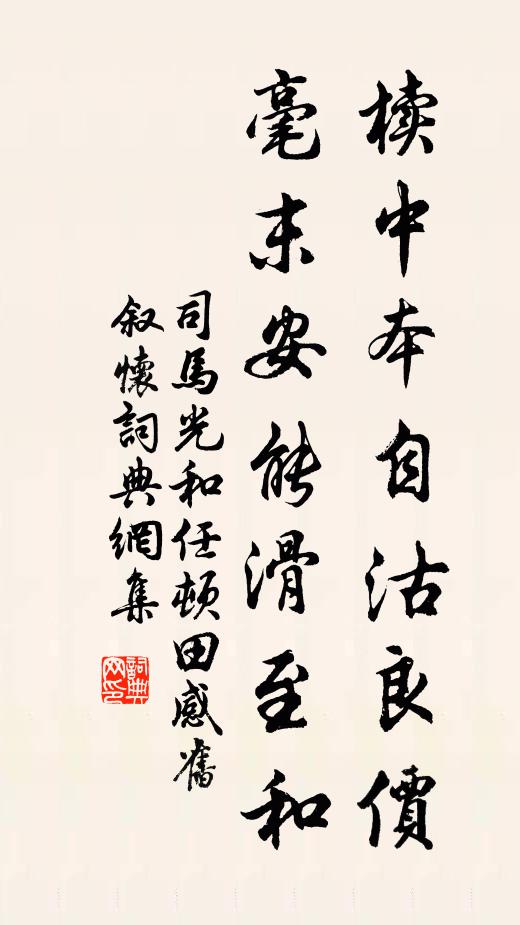 櫝中本自沽良價
毫末安能滑至和
司馬光和任頓田感舊
叙懷詞典網集
詞典網印